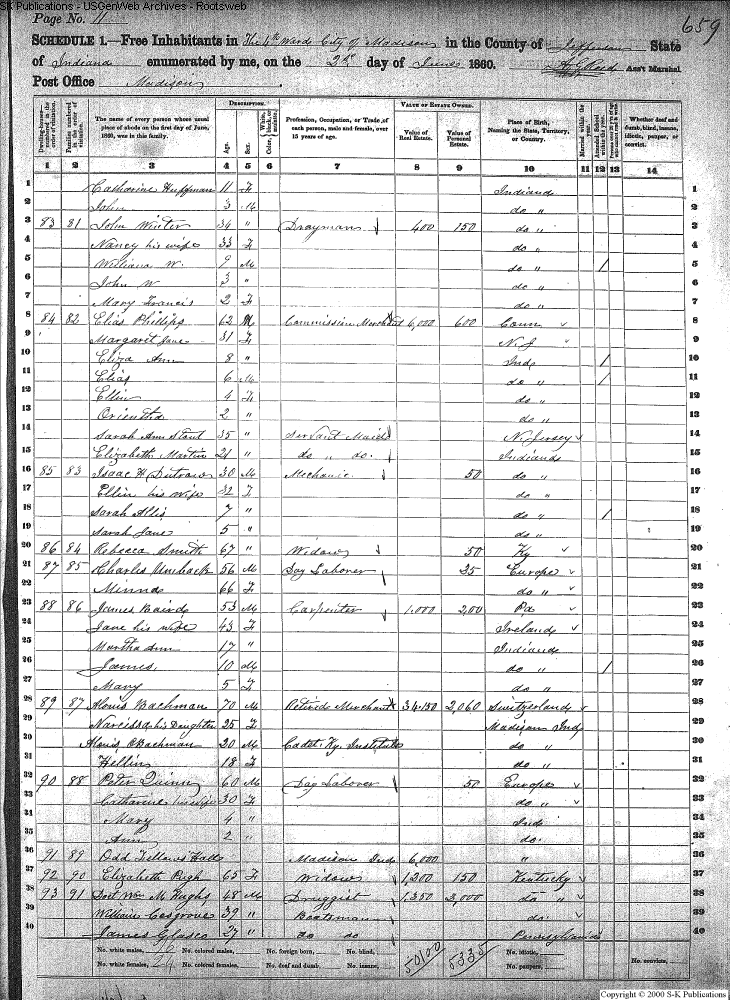 S-K Publications - USGenWeb Archives - Rootsweb
Page No. 11
659
SCHEDULE 1.—Free Inhabitants in The 4th Ward City of Madison in the County of Jefferson State
of Indiana enumerated by me, on the 2d day of June 1860. Ass't Marshal.
Post Office Madison
Dwelling-houses—numbered in the order of visitation.
Families numbered in the order of visitation.
The name of every person whose usual place of abode on the first day of June, 1860, was in this family.
DESCRIPTION.
Age.
Sex.
Color, White, black, or mulatto.
Profession, Occupation, or Trade, of each person, male and female, over 15 years of age.
VALUE OF ESTATE OWNED.
Value of Real Estate.
Value of Personal Estate.
Place of Birth, Naming the State, Territory, or Country.
Married within the year.
Attended School within the year.
Whether deaf and dumb, blind, insane, idiotic, pauper, or convict.
1 2 3 4 5 6 7 8 9 10 11 12 13 14
1 Catharine Huffman 11 F Indiana 1
2 John 3 M do " 2
3 83 81 John Winter 34 " Drayman 400 150 do " 3
4 Nancy his wife 33 F do " 4
5 William W. 9 M do " / 5
6 John W 3 " do " 6
7 Mary Francis 2 F do " 7
8 84 82 Elias Phillips 62 M Commission Merchant 6,000 600 Conn 8
9 Margaret Jane 31 F N. J " 9
10 Eliza Ann 8 " Ind / 10
11 Elias 6 M do " / 11
12 Ellen 4 F do " 12
13 2 " do " 13
14 Sarah Ann Stout 35 " Servant Maid N. Jersey 14
15 Elizabeth Martin 21 " do " do. Indiana 15
16 85 83 Isaac H 30 M Mechanic 50 do " 16
17 Ellen his wife 32 F do " 17
18 Sarah Allis 7 " do " / 18
19 Sarah Jane 5 " do " 19
20 86 84 Rebecca Smith 67 " Widow 50 Ky 20
21 87 85 Charles 56 M Day Laborer 35 Europe 21
22 Minna 66 F do " 22
23 88 86 James Baird 53 M Carpenter 1,000 200 Pa 23
24 Jane his wife 43 F Ireland 24
25 Martha Ann 17 " Indiana 25
26 James 10 M do " / 26
27 Mary 5 F do " 27
28 89 87 Bachman 70 M Retired Merchant 34,150 2,060 Switzerland 28
29 his Daughter 25 F Madison Ind 29
30 Bachman 20 M Cadet Ky. Institute do " 30
31 Hellen 18 F do " 31
32 90 88 Peter Quinn 60 M Day Laborer 50 Europe 32
33 Catharine his wife 30 F do " 33
34 Mary 4 " Ind 34
35 Ann 2 " do 35
36 91 89 Odd Fellows Hall Madison Ind 6,000 " 36
37 92 90 Elizabeth Pugh 65 F Widow 1,200 150 Kentucky 37
38 93 91 48 M Druggist 1,350 2,000 do " 38
39 William Cosgrove 39 " Boatsman do 39
40 James 27 " do do Pennsylvania 40
No. white males, No. colored males, No. foreign born, No. blind, No. idiotic, No. convicts,
No. white females, No. colored females, No. deaf and dumb, No. insane, No. paupers,
50100 5335
Copyright © 2000 S-K Publications